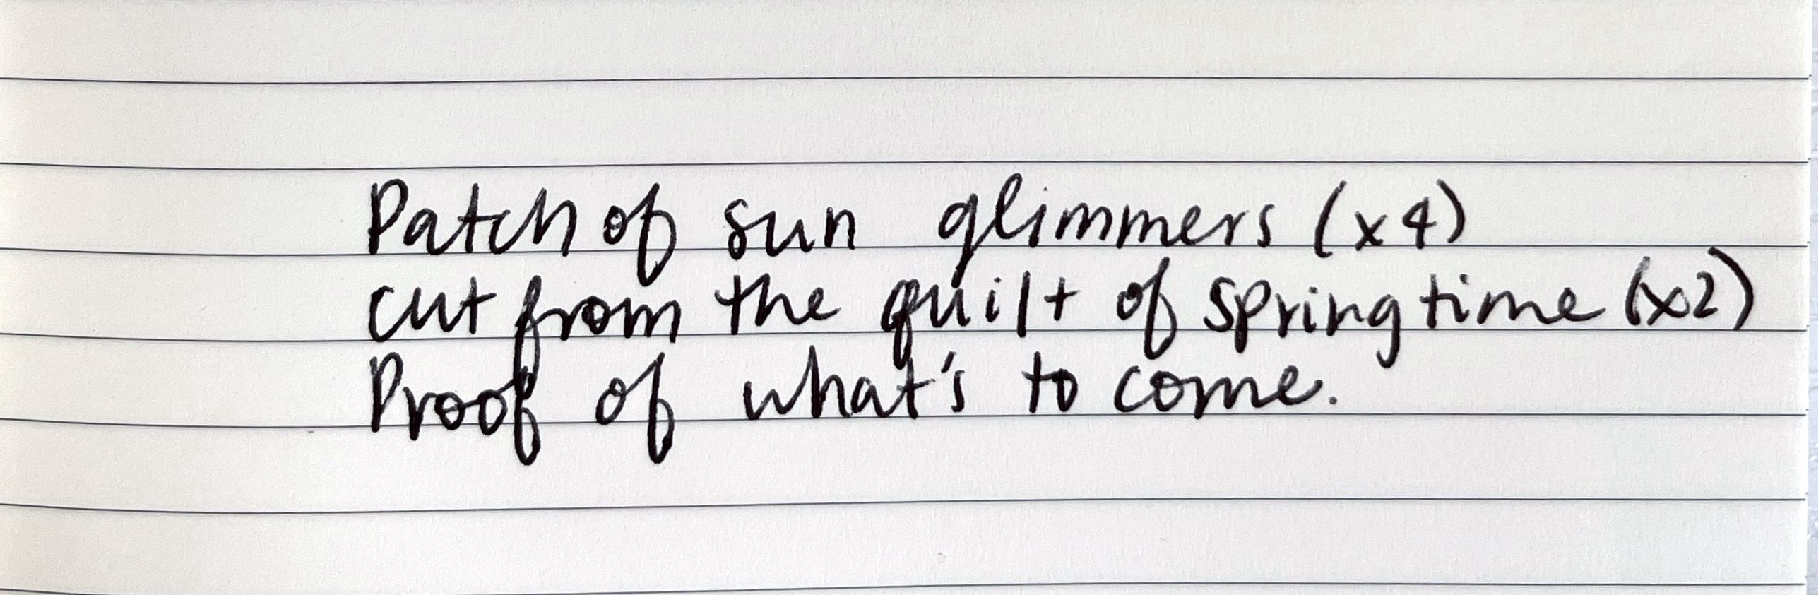 Patch of sun glimmers (x4)
cut from the quilt of springtime (x2)
Proof of what's to come.